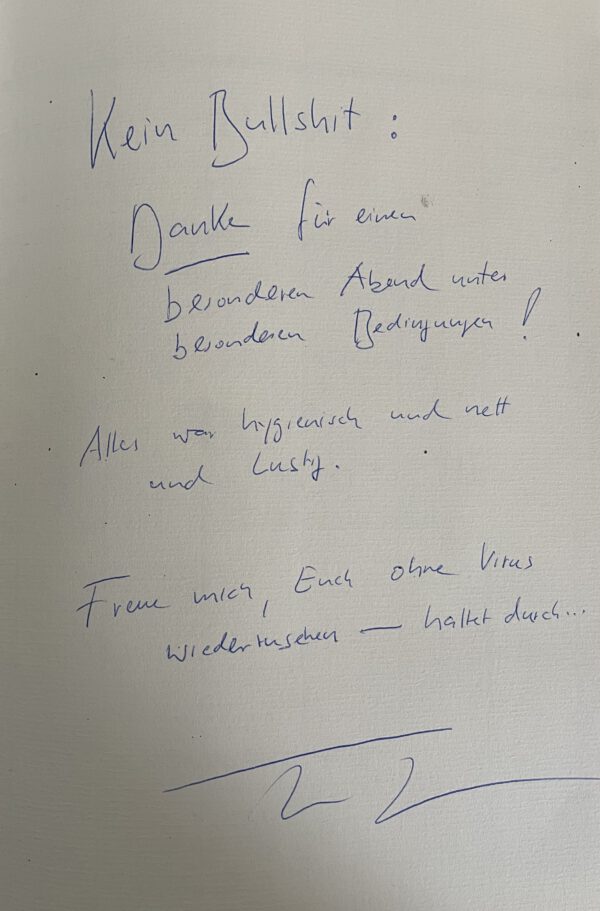 Kein Bullshit :
Danke für einen
besonderen Abend unter
besonderen Bedingungen !
Alles war hygienisch und nett
und lustig.
Freue mich, Euch ohne Virus
wiederzusehen — haltet durch...